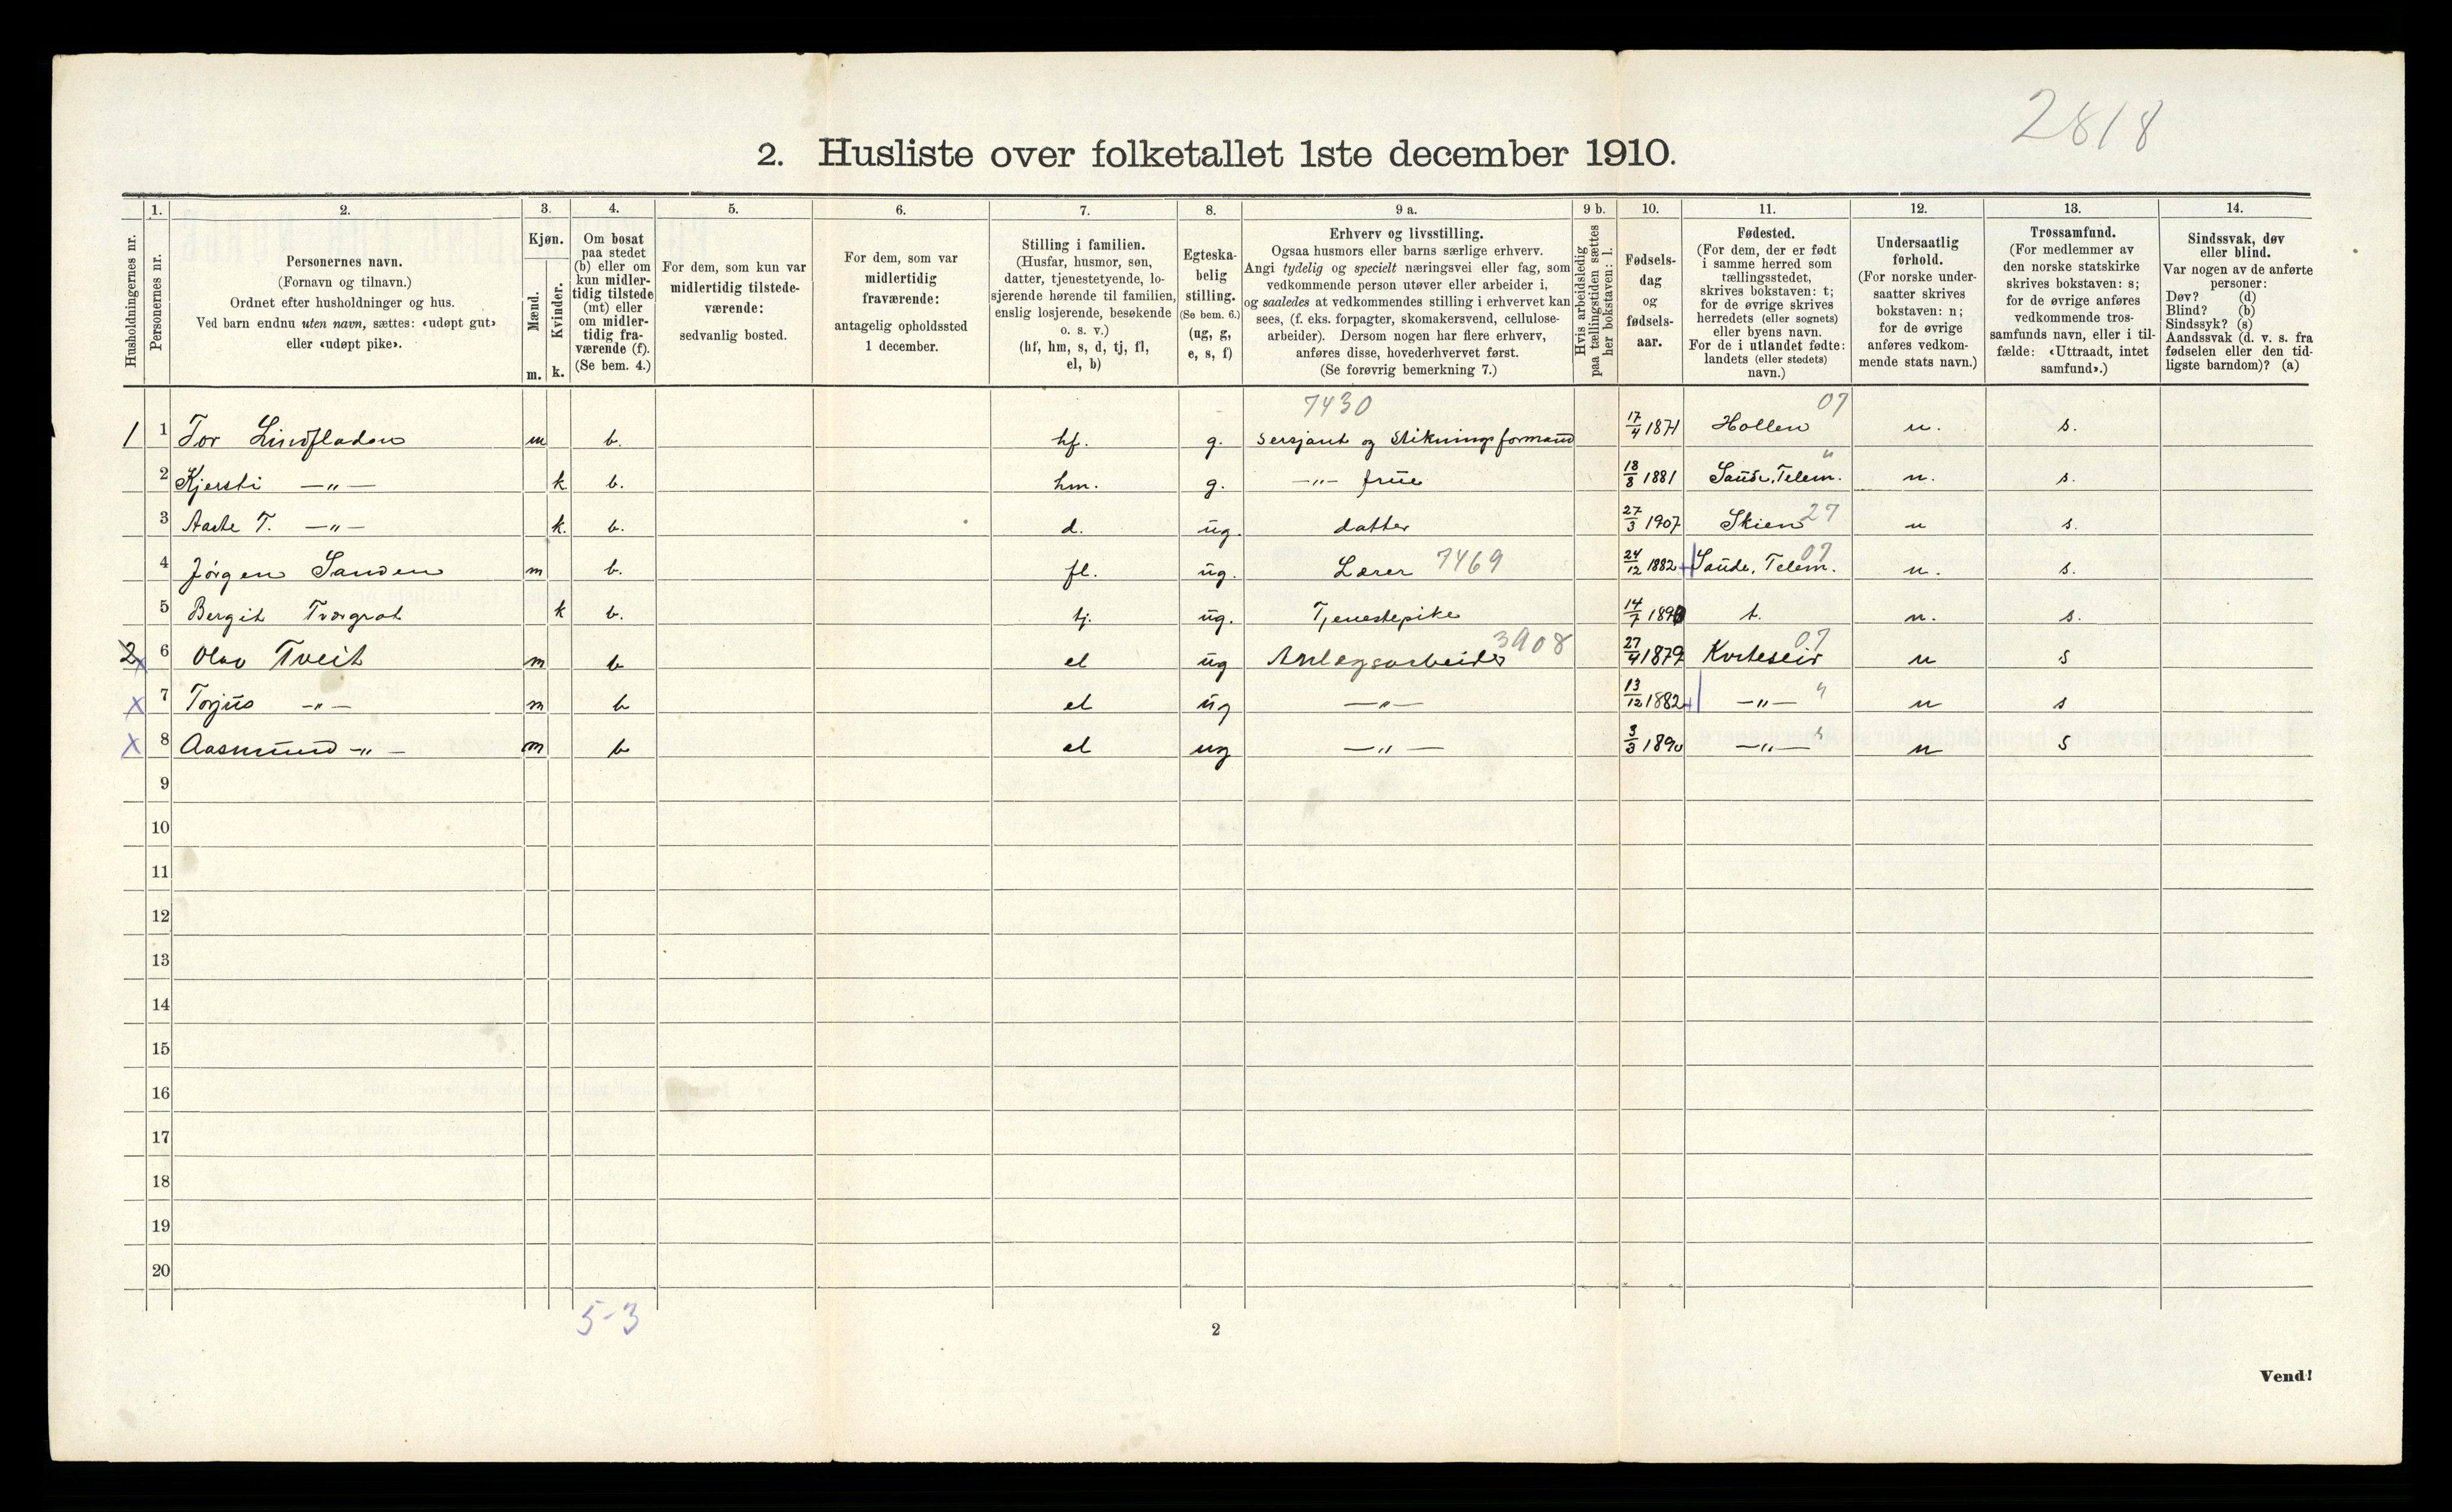 2818
2. Husliste over folketallet 1ste december 1910.
Husholdningernes nr.
1. Personernes nr.
2. Personernes navn.
(Fornavn og tilnavn.)
Ordnet efter husholdninger og hus.
Ved barn endnu uten navn, sættes: «udøpt gut»
eller «udøpt pike».
3. Kjøn.
Mænd. m.
Kvinder. k.
4. Om bosat
paa stedet
(b) eller om
kun midler-
tidig tilstede
(mt) eller
om midler-
tidig fra-
værende (f).
(Se bem. 4.)
5. For dem, som kun var
midlertidig tilstede-
værende:
sedvanlig bosted.
6. For dem, som var
midlertidig
fraværende:
antagelig opholdssted
1 december.
7. Stilling i familien.
(Husfar, husmor, søn,
datter, tjenestetyende, lo-
sjerende hørende til familien,
enslig losjerende, besøkende
o. s. v.)
(hf, hm, s, d, tj, fl,
el, b)
8. Egteska-
belig
stilling.
(Se bem. 6.)
(ug, g,
e, s, f)
9 a. Erhverv og livsstilling.
Ogsaa husmors eller barns særlige erhverv.
Angi tydelig og specielt næringsvei eller fag, som
vedkommende person utøver eller arbeider i,
og saaledes at vedkommendes stilling i erhvervet kan
sees, (f. eks. forpagter, skomakersvend, cellulose-
arbeider). Dersom nogen har flere erhverv,
anføres disse, hovederhvervet først.
(Se forøvrig bemerkning 7.)
9 b. Hvis arbeidsledig
paa tællingstiden sættes
her bokstaven: l.
10. Fødsels-
dag
og
fødsels-
aar.
11. Fødested.
(For dem, der er født
i samme herred som
tællingsstedet,
skrives bokstaven: t;
for de øvrige skrives
herredets (eller sognets)
eller byens navn.
For de i utlandet fødte:
landets (eller stedets)
navn.)
12. Undersaatlig
forhold.
(For norske under-
saatter skrives
bokstaven: n;
for de øvrige
anføres vedkom-
mende stats navn.)
13. Trossamfund.
(For medlemmer av
den norske statskirke
skrives bokstaven: s;
for de øvrige anføres
vedkommende tros-
samfunds navn, eller i til-
fælde: «Uttraadt, intet
samfund».)
14. Sindssvak, døv
eller blind.
Var nogen av de anførte
personer:
Døv? (d)
Blind? (b)
Sindssyk? (s)
Aandssvak (d. v. s. fra
fødselen eller den tid-
ligste barndom)? (a)
7430 07
1 1 Tor Lindfladen m b. hf. g. Sersjant og Stikningsformand 17/4 1871 Hollen n. s.
2 Kjersti —"— k b. hm. g. —"— frue 18/8 1881 Saude, Telem. " n. s.
3 Aaste T. —"— k. b. d. ug. datter 27/3 1907 Skien 27 n s.
4 Jørgen Sanden m b. fl. ug. Lærer 7469 24/12 1882 Saude, Telem. 07 n. s.
5 Bergit Tvergrot k b. tj. ug. Tjenestepike 14/7 t. n. s.
2 x 6 Olav Tveit m b el ug Anlegsarbeider 3908 27/4 1879 07 n s
x 7 Torjus —"— m b el ug —"— 13/12 1882 —"— " n s
x 8 Aasmund —"— m b el ug —"— 3/3 1890 —"— " n s
9
10
11
12
13
14
15
16
17
18
19
20
5-3
2
Vend!